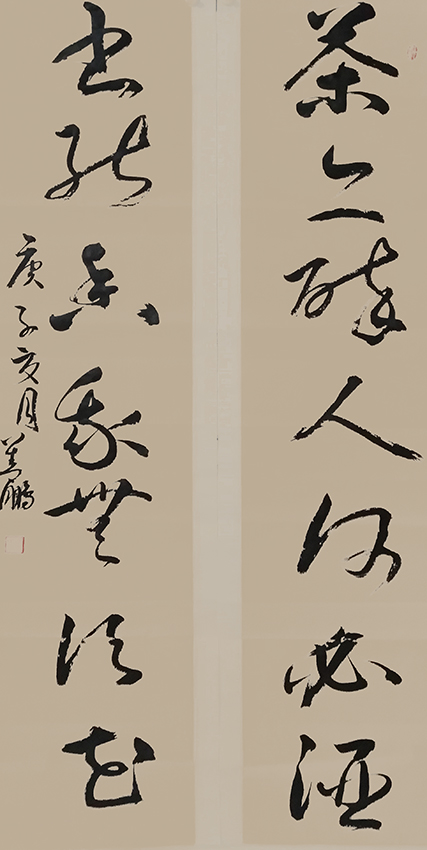 茶亦醉人何必酒
書能香我無須花
庚子夏月
鵬